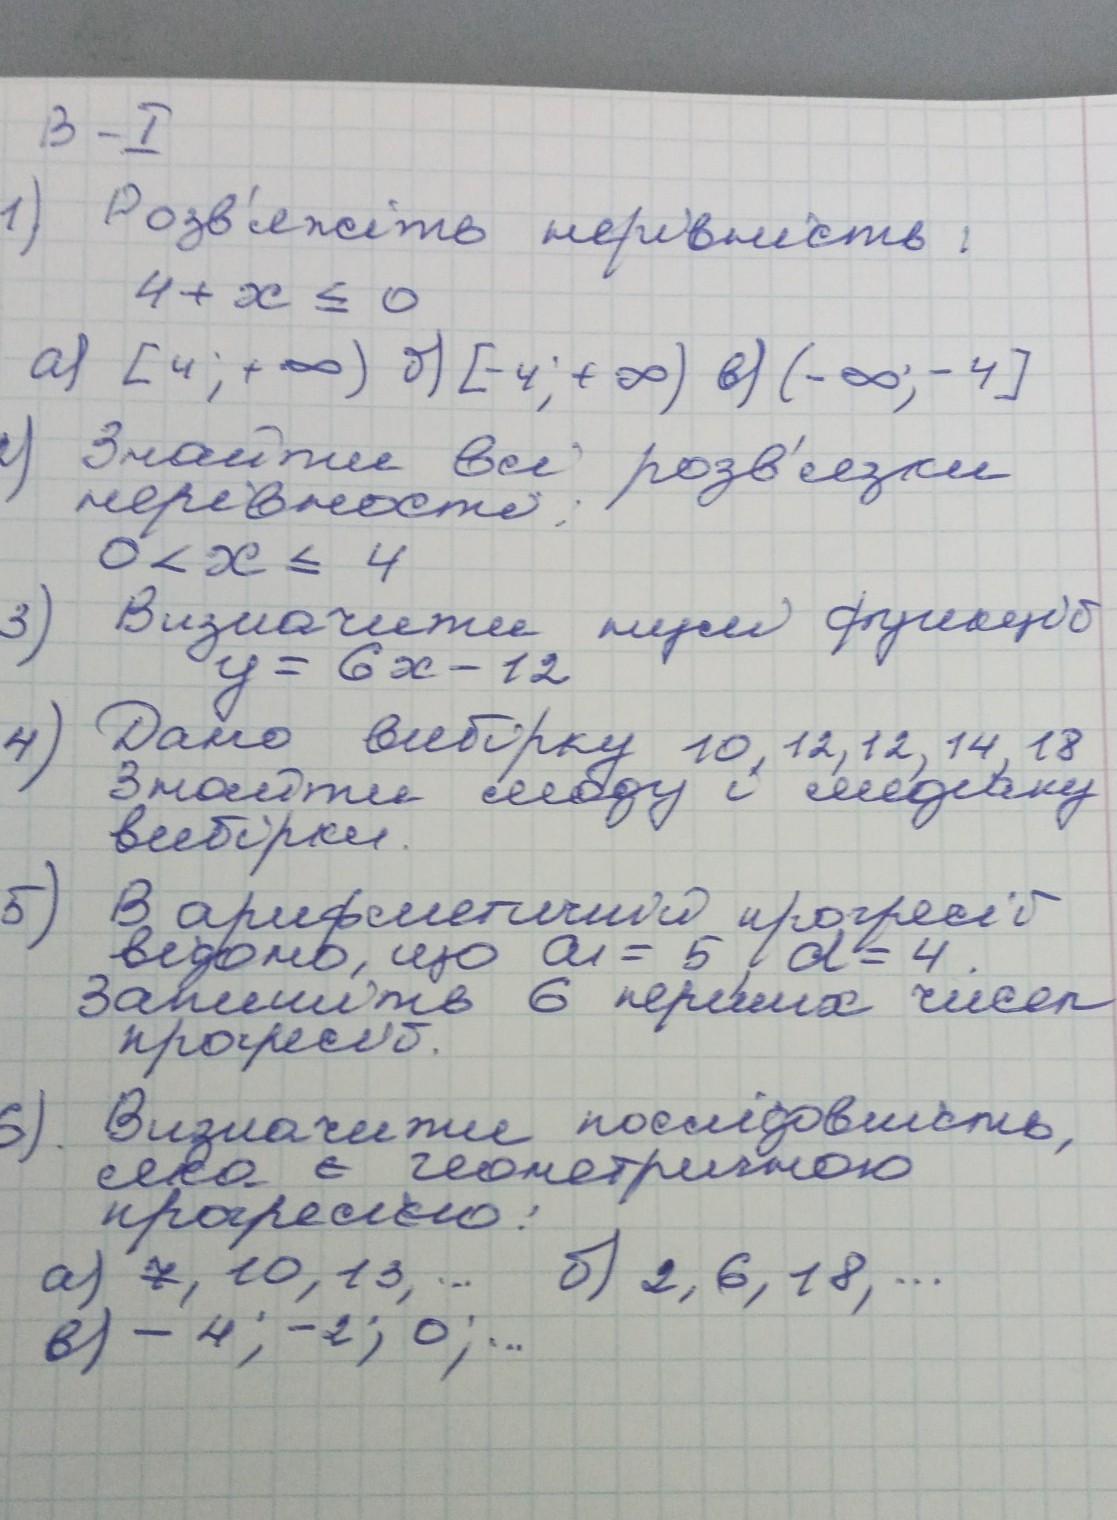 В - I
1) Розв'яжіть нерівність:
4 + x ≤ 0
а) [4; +∞) б) [-4; +∞) в) (-∞; -4]
2) Знайти всі розв'язки
нерівності:
0 < x ≤ 4
3) Визначити нулі функції
y = 6x - 12
4) Дано вибірку 10, 12, 12, 14, 18
Знайти моду і медіану
вибірки.
5) В арифметичній прогресії
відомо, що a1 = 5, d = 4.
Запишіть 6 перших чисел
прогресії.
6). Визначити послідовність,
яка є геометричною
прогресією:
а) 7, 10, 13, ... б) 2, 6, 18, ...
в) - 4; -2; 0; ...